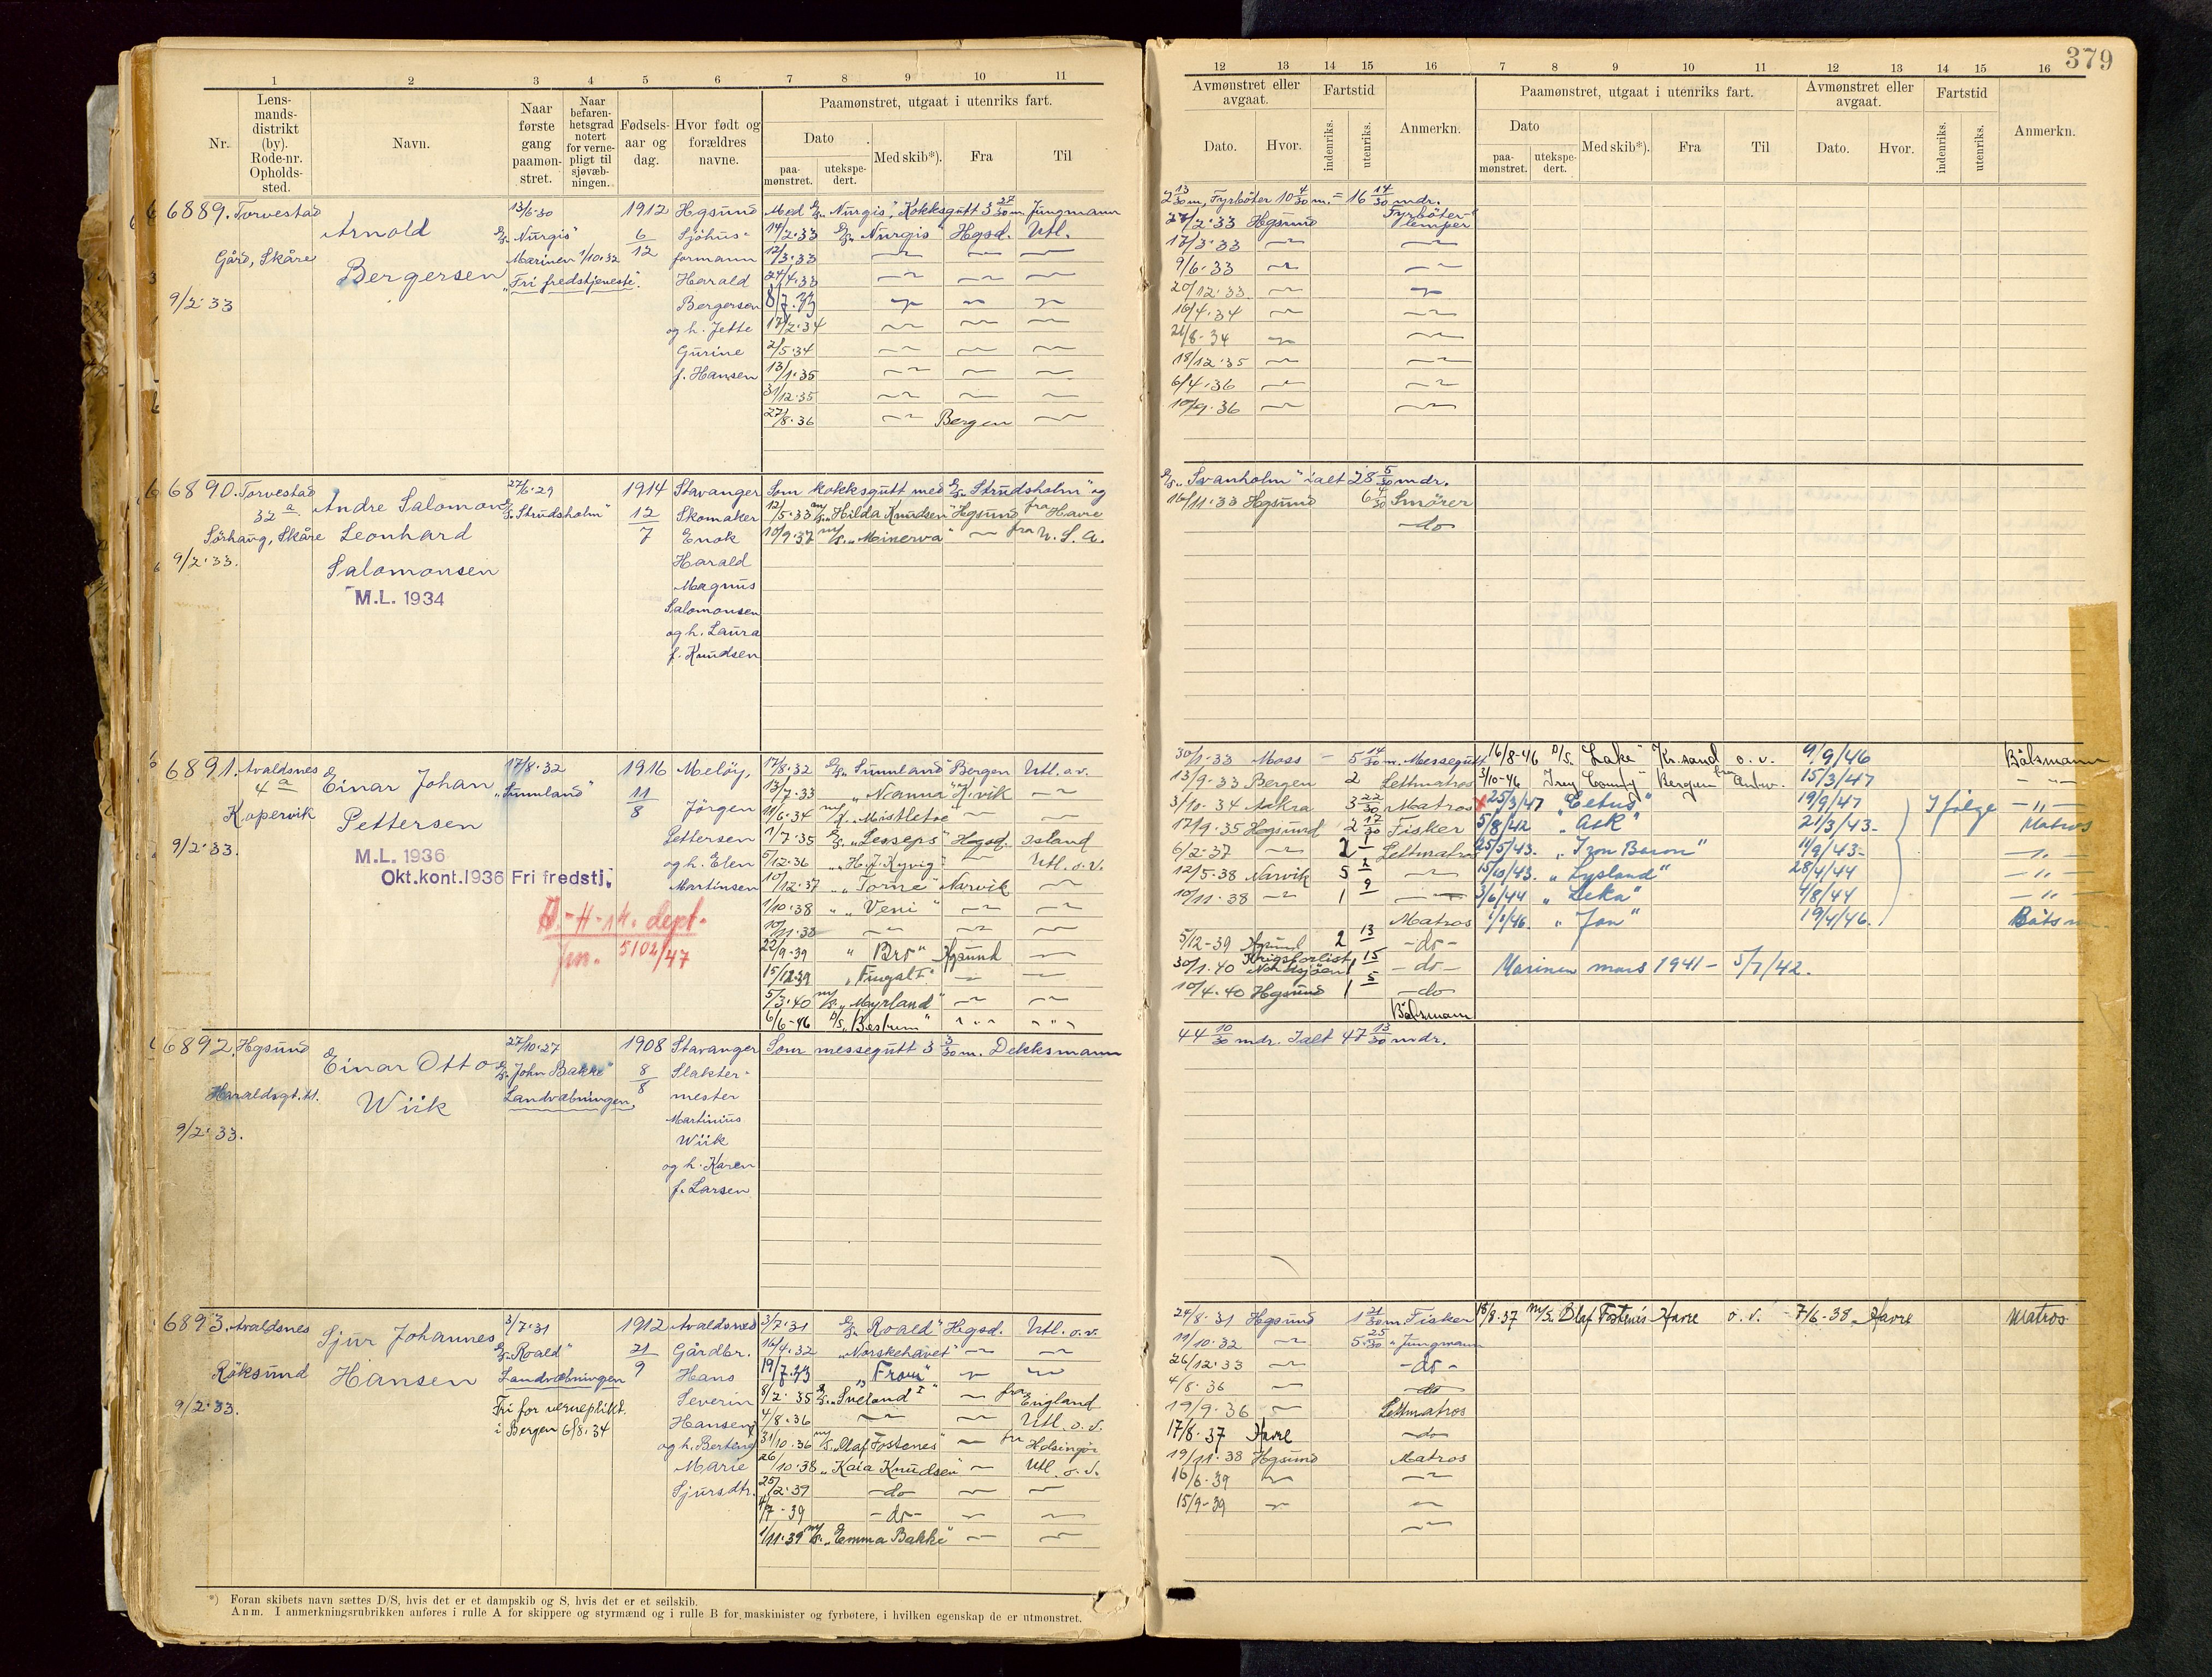 379
1 2 3 4 5 6 7 8 9 10 11
12 13 14 15 16 7 8 9 10 11 12 13 14 15 16
Nr.
Lens-
mands-
distrikt
(by).
Rode-nr.
Opholds-
sted.
Navn.
Naar
første
gang
paamøn-
stret.
Naar
befaren-
hetsgrad
notert
for verne-
pligt til
sjøvæb-
ningen.
Fødsels-
aar og
dag.
Hvor født og
forældres
navne.
Paamønstret, utgaat i utenriks fart.
Dato
paa-
mønstret.
utekspe-
dert.
Med skib*).
Fra
Til
Avmønstret eller
avgaat.
Dato.
Hvor.
Fartstid
indenriks.
utenriks.
Anmerkn.
Paamønstret, utgaat i utenriks fart.
Dato
paa-
mønstret.
utekspe-
dert.
Med skib*).
Fra
Til
Avmønstret eller
avgaat.
Dato.
Hvor.
Fartstid
indenriks.
utenriks.
Anmerkn.
6889. Torvestad
Gård, Skåre
9/2.33
Arnold
Bergersen
13/6.30
D/S „Nurgis"
Marinen 1/10.32
„Fri fredstjeneste".
1912
6
12
Hgsund
Sjöhus-
formann
Harald
Bergersen
og h. Jette
Gurine
f. Hansen
Med D/S „Nurgis", Kokksgutt 3 27/30 m Jungmann
2 13/30 m, Fyrböter 10 4/30 m. = 16 14/30 mdr.
14/2.33 D/S „Nurgis" Hgsd. Utl. 27/2.33 Hgsund Fyrböter-
lemper
12/3.33 17/3.33
24/4.33 9/6.33
8/7.33 20/12.33
17/2.34 16/4.34
2/5.34 21/8.34
13/1.35 18/12.35
31/12.35 6/4.36
27/8.36 Bergen 10/9.36
6890. Torvestad
32 a
Sörhaug, Skåre
9/2.33.
Andre Salomon
Leonhard
Salomonsen
M.L. 1934
27/6.29
D/S „Strudsholm"
1914
12
7
Stavanger
Skomaker
Enok
Harald
Magnus
Salomonsen
og h. Laura
f. Knudsen
Som kokksgutt med D/S „Strudsholm" og
D/S „Svanholm" ialt 28 5/30 mdr.
12/5.33 m/S „Hilda Knudsen" Hgsund fra Havre 16/11.33 Hgsund 6 4/30 Smörer
10/9.37 m/S. „Minerva" fra U. S. A. -do-
6891. Avaldsnes
4 a
Kopervik
9/2.33.
Einar Johan
Pettersen
M.L. 1936
Okt.kont.1936 Fri fredstj.
17/8.32
„Sunnland"
1916
11
8
Meløy,
Jörgen
Pettersen
og h. Elen
Martinsen
jnr. 5102/47
17/8.32 D/S „Sunnland" Bergen Utl. o.v. 30/1.33 Moss 5 14/30 m. Messegutt
13/7.33 „Nanna" H.vik 13/9.33 Bergen 2 Lettmatros
11/6.34 „Mistletoe" 3/10.34 Aakra 3 22/30 Matros
1/7.35 „Lesseps" Hgsd. Island 17/9.35 Hgsund 2 17/30 Fisker
5/12.36 „H. J. Kyvig" Utl. o.v. 6/2.37 2 Lettmatros
10/12.37 „Torne" Narvik 12/5.38 Narvik 5
1/10.38 „Veni" 10/11.38 1 9
10/11.38 Matros
22/9.39 „Bro" Hgsund 5/12-39 Hgsund 2 13 -do-
15/12.39 „Fingal I." 30/1.40 Krigsforlist Nordsjöen 15 -do-
5/3.40 m/S. „Myrland" 10/4.40 Hgsund 1 5 -do-
6/6-46 D/S „Bestum" Båtsmann
16/8-46 D/S. „Lake" Kr.sand o. v. 9/9/46 Båtsmann
3/10-46 Bergen fra Antw. 15/3/47
25/3/47 „Cetus" 19/9/47 I følge
5/8/42 „Ask" 21/3/43 Matros
25/5/43. „Iron Baron" 11/9/43
15/10/43. „Lysland" 28/4/44
3/6/44 „Leka" 4/8/44
1/1/46. „Jan" 19/4/46. Båtsm.
Marinen mars 1941 - 5/7/42.
6892. Hgsund
Haraldsgt.
9/2.33.
Einar Otto
Wiik
27/10.27
D/S „John Bakke"
Landvæbningen
1908
8
8
Stavanger
Slakter-
mester
Martinius
Wiik
og h. Karen
f. Larsen
Som messegutt 3 3/30 m. Dekksmann
44 10/30 mdr. Ialt 47 13/30 mdr.
6893. Avaldsnes
Röksund
9/2.33.
Sjur Johannes
Hansen
3/7.31
D/S „Roald"
Landvæbningen
Fri for verneplikt.
i Bergen 6/8.34
1912
21
9
Avaldsnes
Gårdbr.
Hans
Severin
Hansen
og h. Berting
Marie
Sjursdtr.
3/7.31 D/S „Roald" Hgsd. Utl. o.v. 24/8.31 Hgsund 1 21/30 m. Fisker
16/4.32 „Norskehavet" 11/10.32 5 25/30 „ Jungmann
19/7.33 „From" 26/12.33 -do-
8/2.35 D/S. „Sveland I" fra England 4/8.36 do
4/8.36 Utl. o.v. 19/9.36 Lettmatros
31/10.36 m/S. „Olaf Fostenes" fra Helsingör 17/8.37 Havre do
26/10.38 „Kaia Knudsen" Utl. o.v. 19/11.38 Hgsund Matros
25/2.39 -do- 16/6.39
4/7-39 -do- 15/9-39
1/11.39 m/S. „Emma Bakke"
18/8.37 m/S. Olaf Fostenes Havre o. v. 7/6-38. Havre Matros
*) Foran skibets navn sættes D/S, hvis det er et dampskib og S, hvis det er et seilskib.
Anm. I anmerkningsrubrikken anføres i rulle A for skippere og styrmænd og i rulle B for maskinister og fyrbøtere, i hvilken egenskap de er utmønstret.